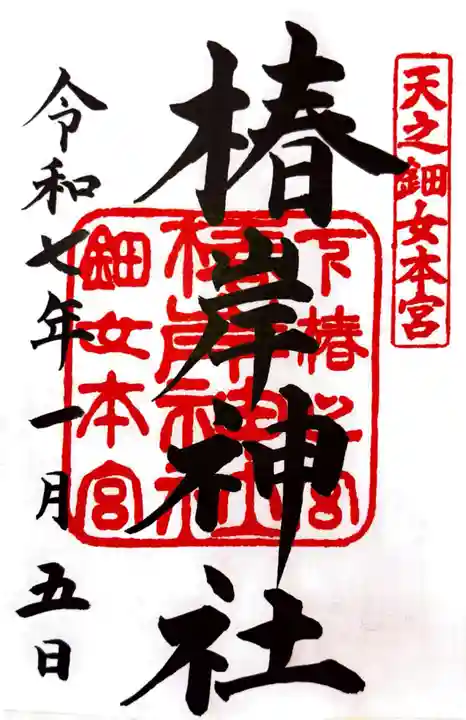 天之鈿女本宮
椿岸神社
下椿
宮
椿岸神社
鈿女本宮
令和七年一月五日